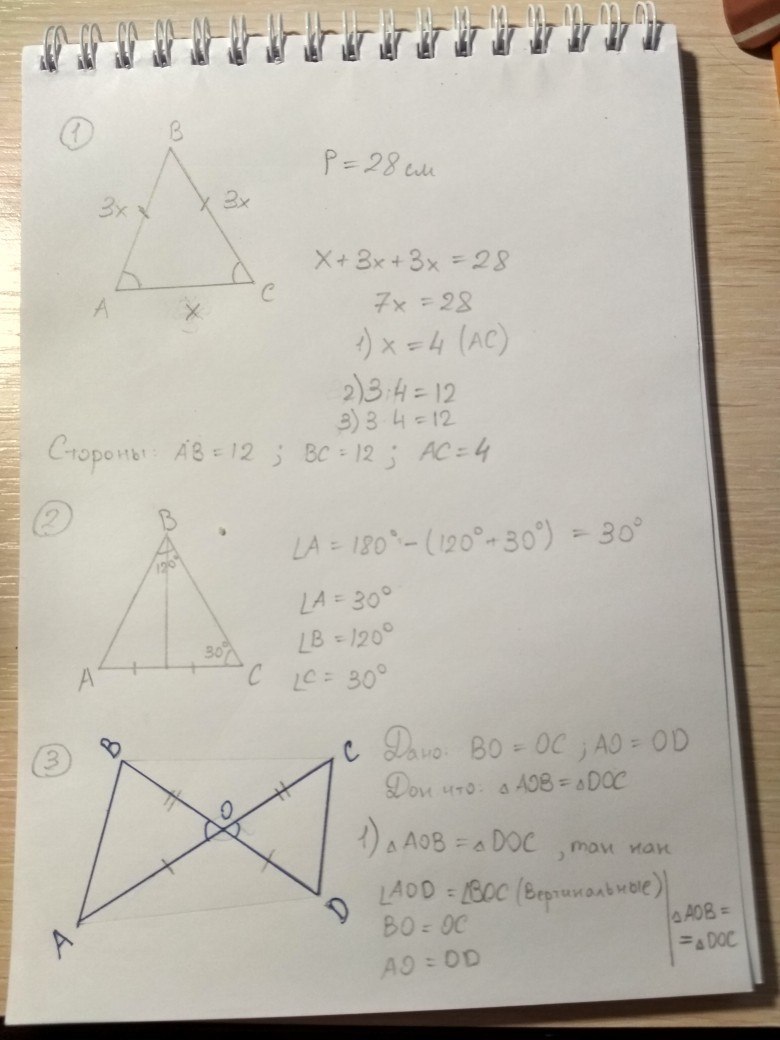 1
B
3x
3x
A
C
x
P = 28 см
x + 3x + 3x = 28
7x = 28
1) x = 4 (AC)
2) 3·4 = 12
3) 3 4 = 12
Стороны: AB = 12 ; BC = 12 ; AC = 4
2
B
120°
30°
A
C
∠A = 180° - (120° + 30°) = 30°
∠A = 30°
∠B = 120°
∠C = 30°
3
B
C
O
A
D
Дано: BO = OC ; AO = OD
Док что: △AOB = △DOC
1) △AOB = △DOC , так как
∠AOD = ∠BOC (Вертикальные)
BO = OC
AO = OD
△AOB =
= △DOC